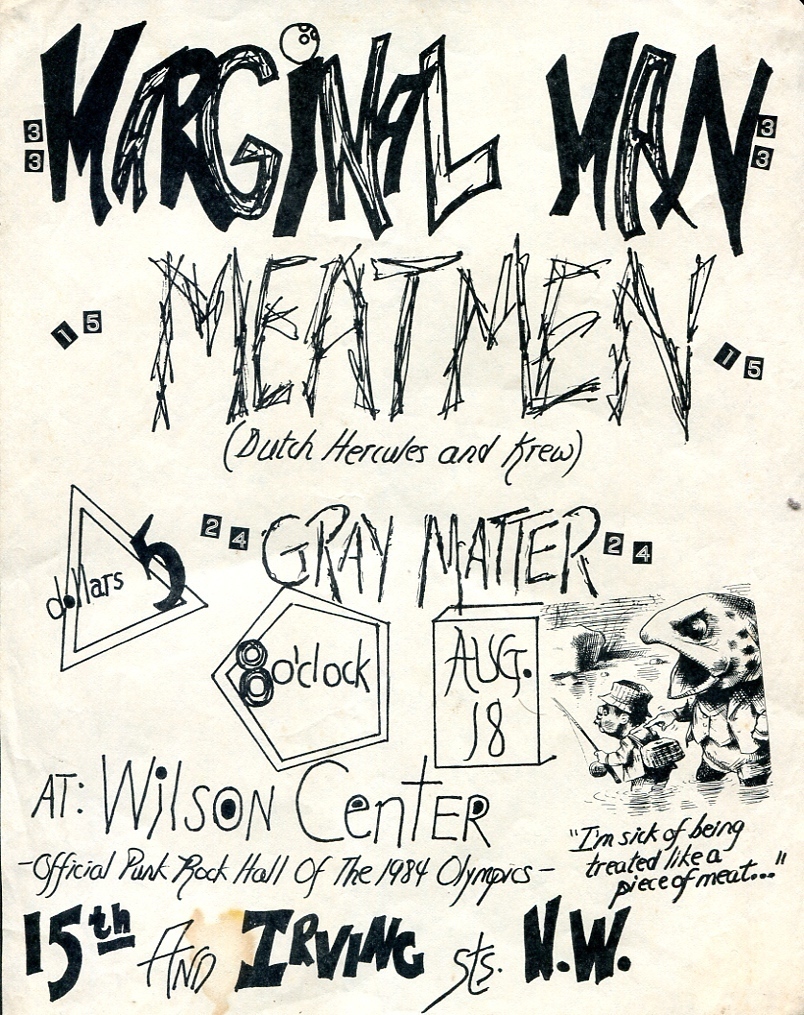 MARGiNAL MAN
3 3
3 3
MEATMEN
15
15
(Dutch Hercules and Krew)
24 GRAY MATTER 24
dollars 5
8 o'clock
AUG.
18
AT: WilsON CentER
-Official Punk Rock Hall Of The 1984 Olympics-
"I'm sick of being
treated like a
piece of meat..."
15th AND IRVING sts. N.W.